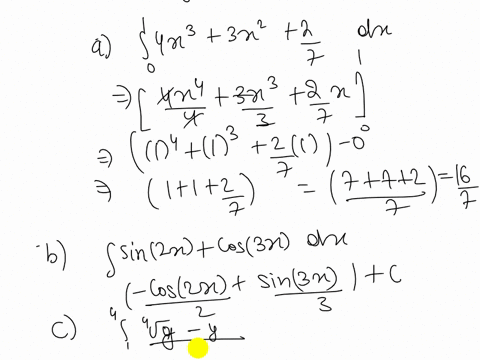 a) ∫₀¹ 4x³ + 3x² + 2/7 dx
⇒ [4x⁴/4 + 3x³/3 + 2/7 x]₀¹
⇒ ((1)⁴ + (1)³ + 2/7 (1)) - 0
⇒ (1 + 1 + 2/7) = (7 + 7 + 2 / 7) = 16/7
b) ∫ sin(2x) + cos(3x) dx
(-cos(2x)/2 + sin(3x)/3) + C
c) ∫₁⁴ ⁴√y - y